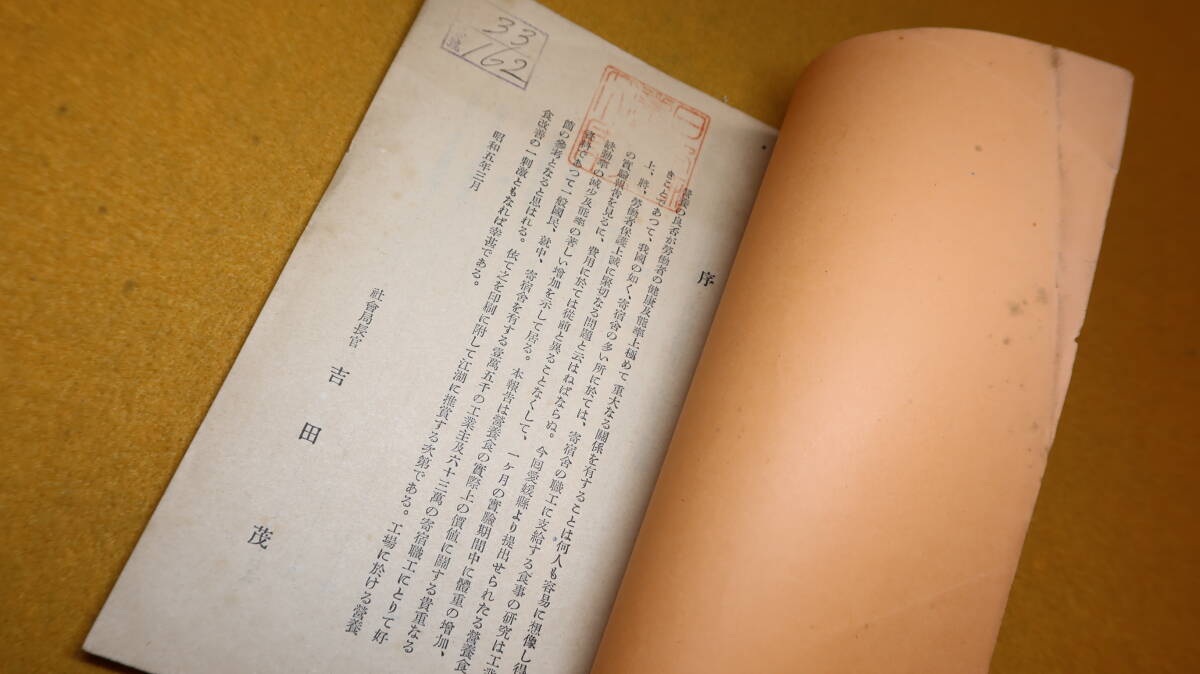 33
162
序
養の良否が勞働者の健康及能率上極めて重大なる關係を有することは何人も容易に想像し得
きことであつて、我國の如く、寄宿舍の多い所に於ては、寄宿舍の職工に支給する食事の研究は工業
上、將、勞働者保護上誠に緊切なる問題と云はねばならぬ。今回愛媛縣より提出せられたる營養食
の實驗報告を見るに、費用に於ては從前と異ることなくして、一ケ月の實驗期間中に體重の增加、
缺勤率の減少及能率の著しい增加を示して居る。本報告は營養食の實際上の價値に關する貴重なる
資料であつて一般國民、就中、寄宿舍を有する壹萬五千の工業主及六十三萬の寄宿職工にとりて好
箇の參考となると思はれる。依て之を印刷に附して江湖に推賞する次第である。工場に於ける營養
食改善の一刺激ともなれば幸甚である。
昭和五年三月
社會局長官 吉田茂